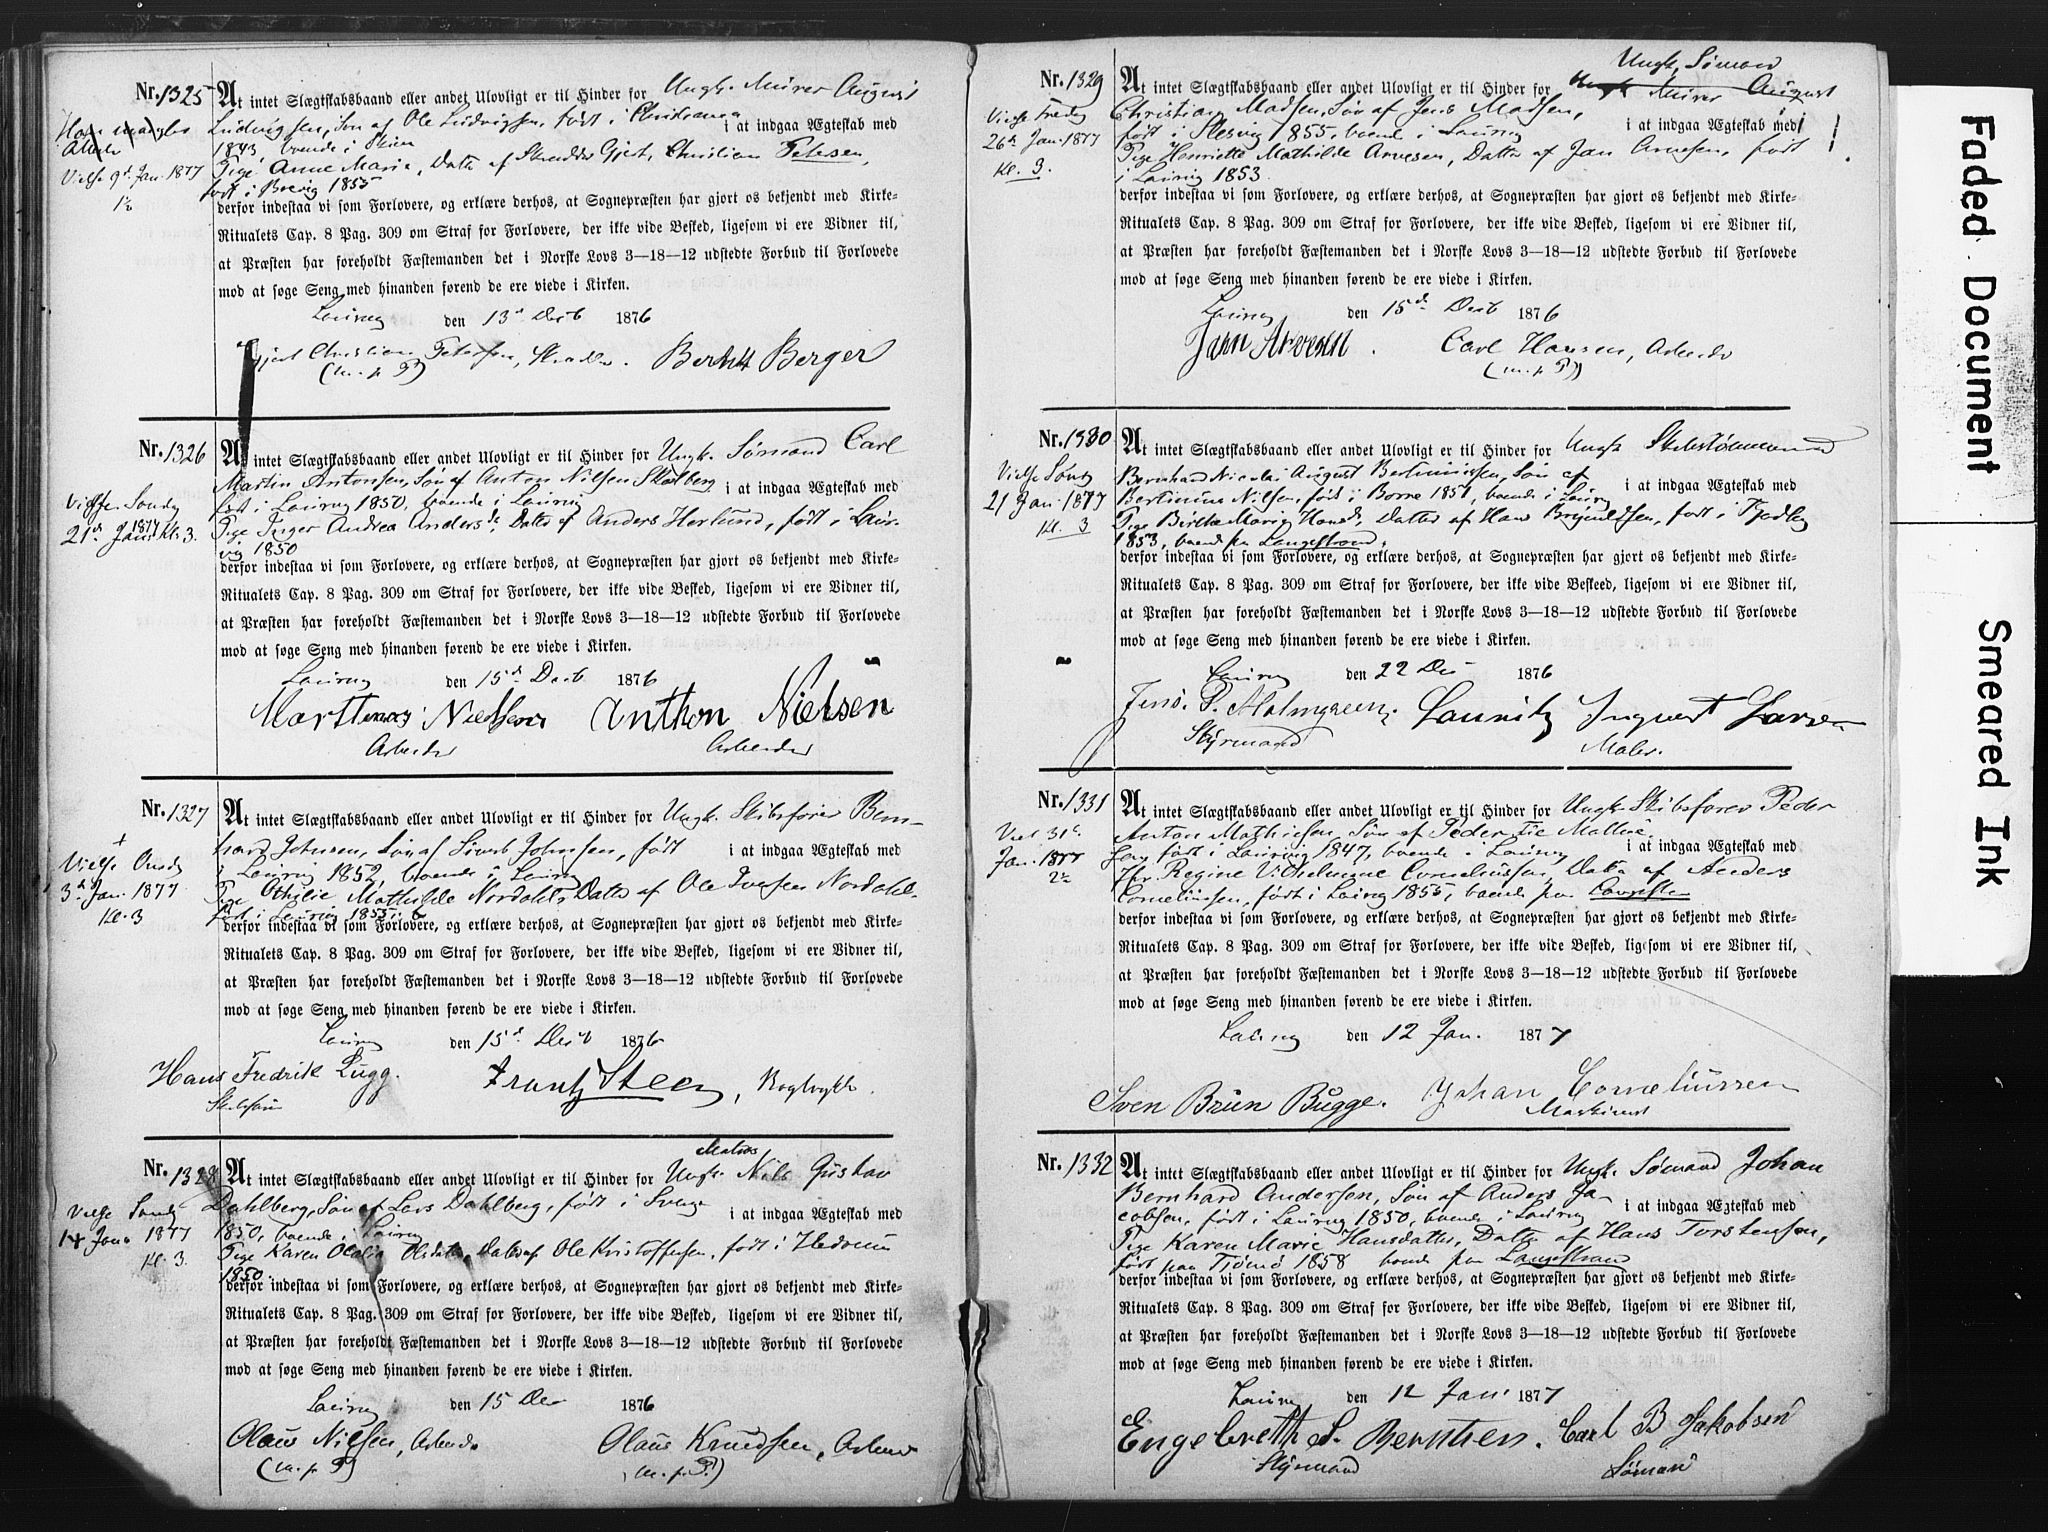 Nr. 1325 At intet Slægtskabsbaand eller andet Ulovligt er til Hinder for Ungk. Murer August
Ludvigsen, Søn af Ole Ludvigsen, født i Christiania i at indgaa Ægteskab med
1843, boende i Skien
Pige Anne Marie, Datter af Skrædder Gjert Christian Petersen,
født i Brevig 1855
Vielse 9d Jan. 1877
derfor indestaa vi som Forlovere, og erklære derhos, at Sognepræsten har gjort os bekjendt med Kirke-
Ritualets Cap. 8 Pag. 309 om Straf for Forlovere, der ikke vide Besked, ligesom vi ere Vidner til,
at Præsten har foreholdt Fæstemanden det i Norske Lovs 3—18—12 udstedte Forbud til Forlovede
mod at søge Seng med hinanden førend de ere viede i Kirken.
Laurvig den 13d Decb 1876
Gjert Christian Petersen, Skrædder. Berhtt Berger
(m. p. P)
Nr. 1326 At intet Slægtskabsbaand eller andet Ulovligt er til Hinder for Ungk. Sømand Carl
Martin Antonsen, Søn af Anton Nilsen Skalberg i at indgaa Ægteskab med
født i Laurvig 1850, boende i Laurvig
Pige Inger Andrea Andersd. Datter af Anders Herlund, født i Laur-
vig 1850
Vielse Søndg
21de Jan. 1877 Kl. 3.
derfor indestaa vi som Forlovere, og erklære derhos, at Sognepræsten har gjort os bekjendt med Kirke-
Ritualets Cap. 8 Pag. 309 om Straf for Forlovere, der ikke vide Besked, ligesom vi ere Vidner til,
at Præsten har foreholdt Fæstemanden det i Norske Lovs 3—18—12 udstedte Forbud til Forlovede
mod at søge Seng med hinanden førend de ere viede i Kirken.
Laurvig den 15d Decb 1876
Marttinus Nielsen Anthon Nielsen
Arbeider Arbeider
Nr. 1327 At intet Slægtskabsbaand eller andet Ulovligt er til Hinder for Ungk. Skibsfører Bern-
hard Johnsen, Søn af Sivert Johnsen, født i at indgaa Ægteskab med
i Laurvig 1852, boende i Laurvig
Pige Othilie Mathilde Nordahl, Datter af Ole Iversen Nordahl
født i Laurvig 1855
Vielse Onsdg
3d Jan. 1877
Kl. 3
derfor indestaa vi som Forlovere, og erklære derhos, at Sognepræsten har gjort os bekjendt med Kirke-
Ritualets Cap. 8 Pag. 309 om Straf for Forlovere, der ikke vide Besked, ligesom vi ere Vidner til,
at Præsten har foreholdt Fæstemanden det i Norske Lovs 3—18—12 udstedte Forbud til Forlovede
mod at søge Seng med hinanden førend de ere viede i Kirken.
Laurvig den 15d Decb 1876
Hans Fredrik Bugg. Frantz Steen,
Skibsfører
Nr. 1328 At intet Slægtskabsbaand eller andet Ulovligt er til Hinder for Ungk. Matros Nils Gustav
Dahlberg, Søn af Lars Dahlberg, født i Sverge i at indgaa Ægteskab med
1850, boende i Laurvig
Pige Karen Olalie Olsdatter, Datter af Ole Kristoffersen, født i Hedrum
1850
Vielse Søndg
14 Jan 1877
Kl. 3.
derfor indestaa vi som Forlovere, og erklære derhos, at Sognepræsten har gjort os bekjendt med Kirke-
Ritualets Cap. 8 Pag. 309 om Straf for Forlovere, der ikke vide Besked, ligesom vi ere Vidner til,
at Præsten har foreholdt Fæstemanden det i Norske Lovs 3—18—12 udstedte Forbud til Forlovede
mod at søge Seng med hinanden førend de ere viede i Kirken.
Laurvig den 15 Dec 1876
Olaus Nilsen, Arbeider Olaus Knudsen, Arbeider
(m. p. P) (m. p. P.)
Nr. 1329 At intet Slægtskabsbaand eller andet Ulovligt er til Hinder for Ungk. Murer August
Ungk. Sømand
Christian Madsen, Søn af Jens Madsen, i at indgaa Ægteskab med
født i Slesvig 1855, boende i Laurvig
Pige Henriette Mathilde Arvesen, Datter af Jan Arvesen, født
i Laurvig 1853.
Vielse Fredg
26de Jan. 1877
Kl. 3.
derfor indestaa vi som Forlovere, og erklære derhos, at Sognepræsten har gjort os bekjendt med Kirke-
Ritualets Cap. 8 Pag. 309 om Straf for Forlovere, der ikke vide Besked, ligesom vi ere Vidner til,
at Præsten har foreholdt Fæstemanden det i Norske Lovs 3—18—12 udstedte Forbud til Forlovede
mod at søge Seng med hinanden førend de ere viede i Kirken.
Laurvig den 15d Decb 1876
Jahn Arvesen. Carl Hansen, Arbeider
(m. p. P)
Nr. 1330 At intet Slægtskabsbaand eller andet Ulovligt er til Hinder for Ungk Skibstømmermand
Bernhard Nicolai August Bertinussen, Søn af
Bertinus Nilsen, født i Borre 1851, boende i Laurvig i at indgaa Ægteskab med
Pige Birthe Marie Hansd, Datter af Hans Brynildsen, født i Fjedleg
1853, boende paa Langestrand.
Vielse Søndg
21 Jan. 1877
Kl. 3
derfor indestaa vi som Forlovere, og erklære derhos, at Sognepræsten har gjort os bekjendt med Kirke-
Ritualets Cap. 8 Pag. 309 om Straf for Forlovere, der ikke vide Beskeed, ligesom vi ere Vidner til,
at Præsten har foreholdt Fæstemanden det i Norske Lovs 3—18—12 udstedte Forbud til Forlovede
mod at søge Seng med hinanden førend de ere viede i Kirken.
Laurvig den 22 Dec 1876
Jens. P. Malmgreen. Lauritz Ingvart Larsen
Styrmand Maler.
Nr. 1331 At intet Slægtskabsbaand eller andet Ulovligt er til Hinder for Ungk. Skibsfører Peder
Anton Mathiesen, Søn af Peder
født i Laurvig 1847, boende i Laurvig i at indgaa Ægteskab med
Regine Vilhelmine Corneliussen, Datter af Anders
Corneliusen, født i Laurvig 1855, boende paa Langestr
31te
Jan. 1877
derfor indestaa vi som Forlovere, og erklære derhos, at Sognepræsten har gjort os bekjendt med Kirke-
Ritualets Cap. 8 Pag. 309 om Straf for Forlovere, der ikke vide Besked, ligesom vi ere Vidner til,
at Præsten har foreholdt Fæstemanden det i Norske Lovs 3—18—12 udstedte Forbud til Forlovede
mod at søge Seng med hinanden førend de ere viede i Kirken.
Laurvig den 12 Jan. 1877
Sven Brun Bugge. Johan Corneliussen
Maskinist
Nr. 1332 At intet Slægtskabsbaand eller andet Ulovligt er til Hinder for Ungk. Sømand Johan
Bernhard Andersen, Søn af Anders Ja-
cobsen, født i Laurvig 1850, boende i Laurvig i at indgaa Ægteskab med
Pige Karen Marie Hansdatter, Datter af Hans Torstensen,
født paa Tjømø 1858 boende paa Langestrand
derfor indestaa vi som Forlovere, og erklære derhos, at Sognepræsten har gjort os bekjendt med Kirke-
Ritualets Cap. 8 Pag. 309 om Straf for Forlovere, der ikke vide Besked, ligesom vi ere Vidner til,
at Præsten har foreholdt Fæstemanden det i Norske Lovs 3—18—12 udstedte Forbud til Forlovede
mod at søge Seng med hinanden førend de ere viede i Kirken.
Laurvig den 12 Jan 1877
Engebreth S. Berntsen. Carl B Jakobsen
Styrmand Sømand
Faded Document
Smeared Ink